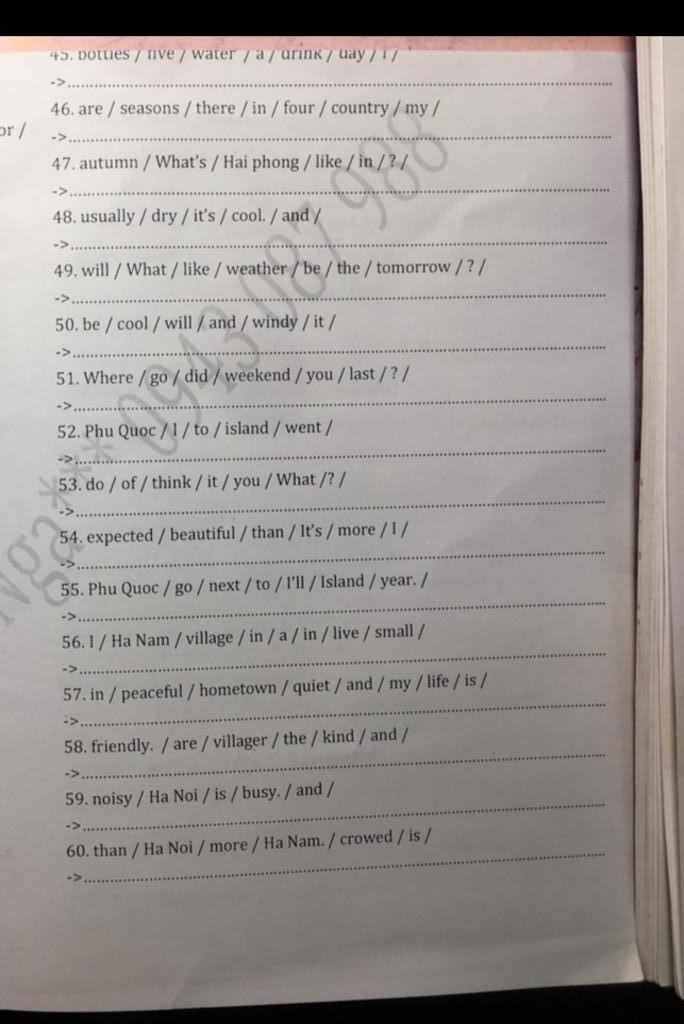 45. bottles / five / water / a / drink / day / I /
->
or /
46. are / seasons / there / in / four / country / my /
->
47. autumn / What's / Hai phong / like / in / ? /
->
48. usually / dry / it's / cool. / and /
->
49. will / What / like / weather / be / the / tomorrow / ? /
->
50. be / cool / will / and / windy / it /
->
51. Where / go / did / weekend / you / last / ? /
->
52. Phu Quoc / I / to / island / went /
->
53. do / of / think / it / you / What /? /
->
54. expected / beautiful / than / It's / more / I /
->
55. Phu Quoc / go / next / to / I'll / Island / year. /
->
56. I / Ha Nam / village / in / a / in / live / small /
->
57. in / peaceful / hometown / quiet / and / my / life / is /
->
58. friendly. / are / villager / the / kind / and /
->
59. noisy / Ha Noi / is / busy. / and /
->
60. than / Ha Noi / more / Ha Nam. / crowed / is /
->
Nga*** 0943 087 988